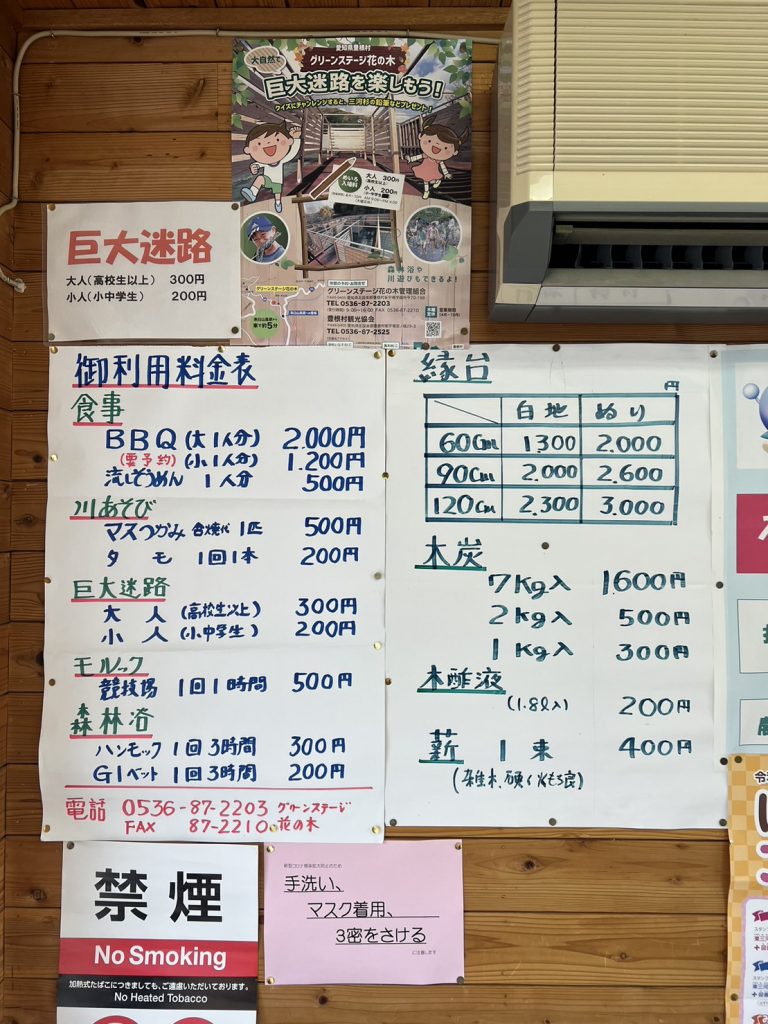 愛知県豊根村
大自然で
グリーンステージ花の木
巨大迷路を楽しもう!
クイズにチャレンジすると、三河杉の鉛筆などプレゼント!
めいろ入場料
大人 300円
(高校生以上)
小人 200円
森林浴や
川遊びもできるよ!
グリーンステージ花の木
車で約5分
グリーンステージ花の木管理組合
TEL 0536-87-2203
豊根村観光協会
TEL 0536-87-2525
巨大迷路
大人(高校生以上) 300円
小人(小中学生) 200円
御利用料金表
食事
BBQ (大1人分) 2.000円
(要予約) (小1人分) 1.200円
流しそうめん 1人分 500円
川あそび
マスつかみ 含焼代 1匹 500円
タモ 1回1本 200円
巨大迷路
大人 (高校生以上) 300円
小人 (小中学生) 200円
モルック
競技場 1回1時間 500円
森林浴
ハンモック 1回3時間 300円
GIベット 1回3時間 200円
電話 0536-87-2203 グリーンステージ
FAX 87-2210 花の木
縁台
円
白地 ぬり
60Cm 1300 2.000
90Cm 2.000 2.600
120Cm 2.300 3.000
木炭
7Kg入 1600円
2Kg入 500円
1Kg入 300円
木酢液
(1.8ℓ入) 200円
薪 1束 400円
(雑木、硬く火もち良)
禁煙
No Smoking
加熱式たばこにつきましても、ご遠慮いただいております。
No Heated Tobacco
新型コロナ感染拡大防止のため
手洗い、
マスク着用、
3密をさける
に注意します